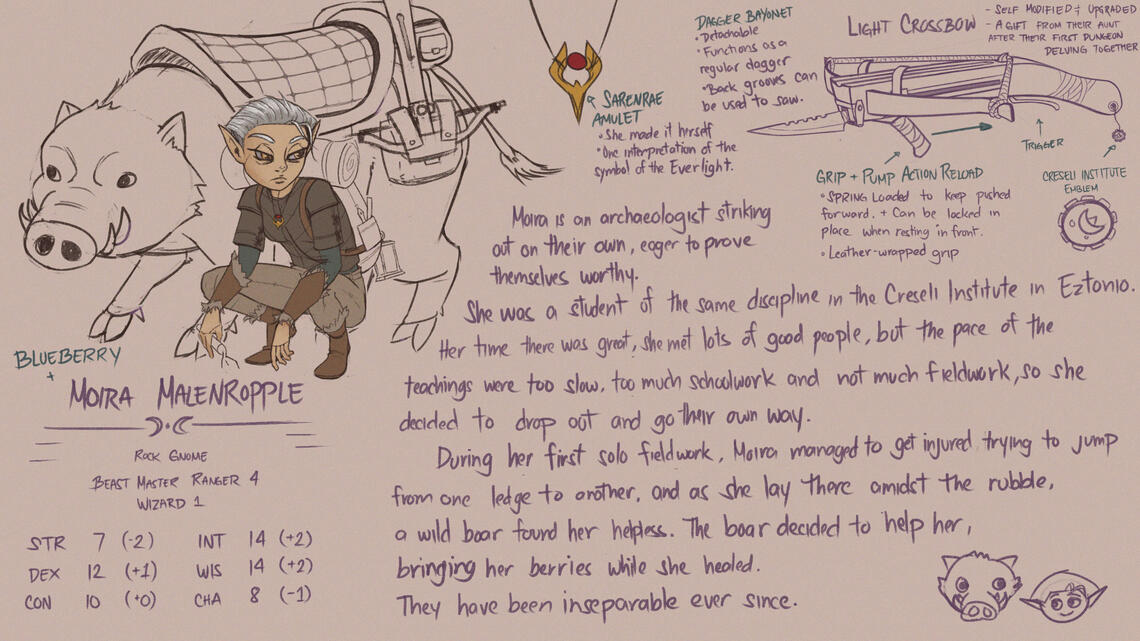 DAGGER BAYONET
• Detachable
• Functions as a
regular dagger
• Back grooves can
be used to saw.
LIGHT CROSSBOW
- SELF MODIFIED + UPGRADED
- A GIFT FROM THEIR AUNT
AFTER THEIR FIRST DUNGEON
DELVING TOGETHER
SARENRAE
AMULET
• She made it hirself
• One interpretation of the
symbol of the Everlight.
TRIGGER
GRIP + PUMP ACTION RELOAD
• SPRING LOADED to keep pushed
forward. + Can be locked in
place when resting in front.
• Leather-wrapped grip
CRESELI INSTITUTE
EMBLEM
Moira is an archaeologist striking
out on their own, eager to prove
themselves worthy.
She was a student of the same discipline in the Creseli Institute in Eztonio.
Her time there was great, she met lots of good people, but the pace of the
teachings were too slow, too much schoolwork and not much fieldwork, so she
decided to drop out and go their own way.
During her first solo fieldwork, Moira managed to get injured trying to jump
from one ledge to another, and as she lay there amidst the rubble,
a wild boar found her helpless. The boar decided to help her,
bringing her berries while she healed.
They have been inseparable ever since.
BLUEBERRY
+
MOIRA MALENROPPLE
ROCK GNOME
BEAST MASTER RANGER 4
WIZARD 1
STR 7 (-2) INT 14 (+2)
DEX 12 (+1) WIS 14 (+2)
CON 10 (+0) CHA 8 (-1)